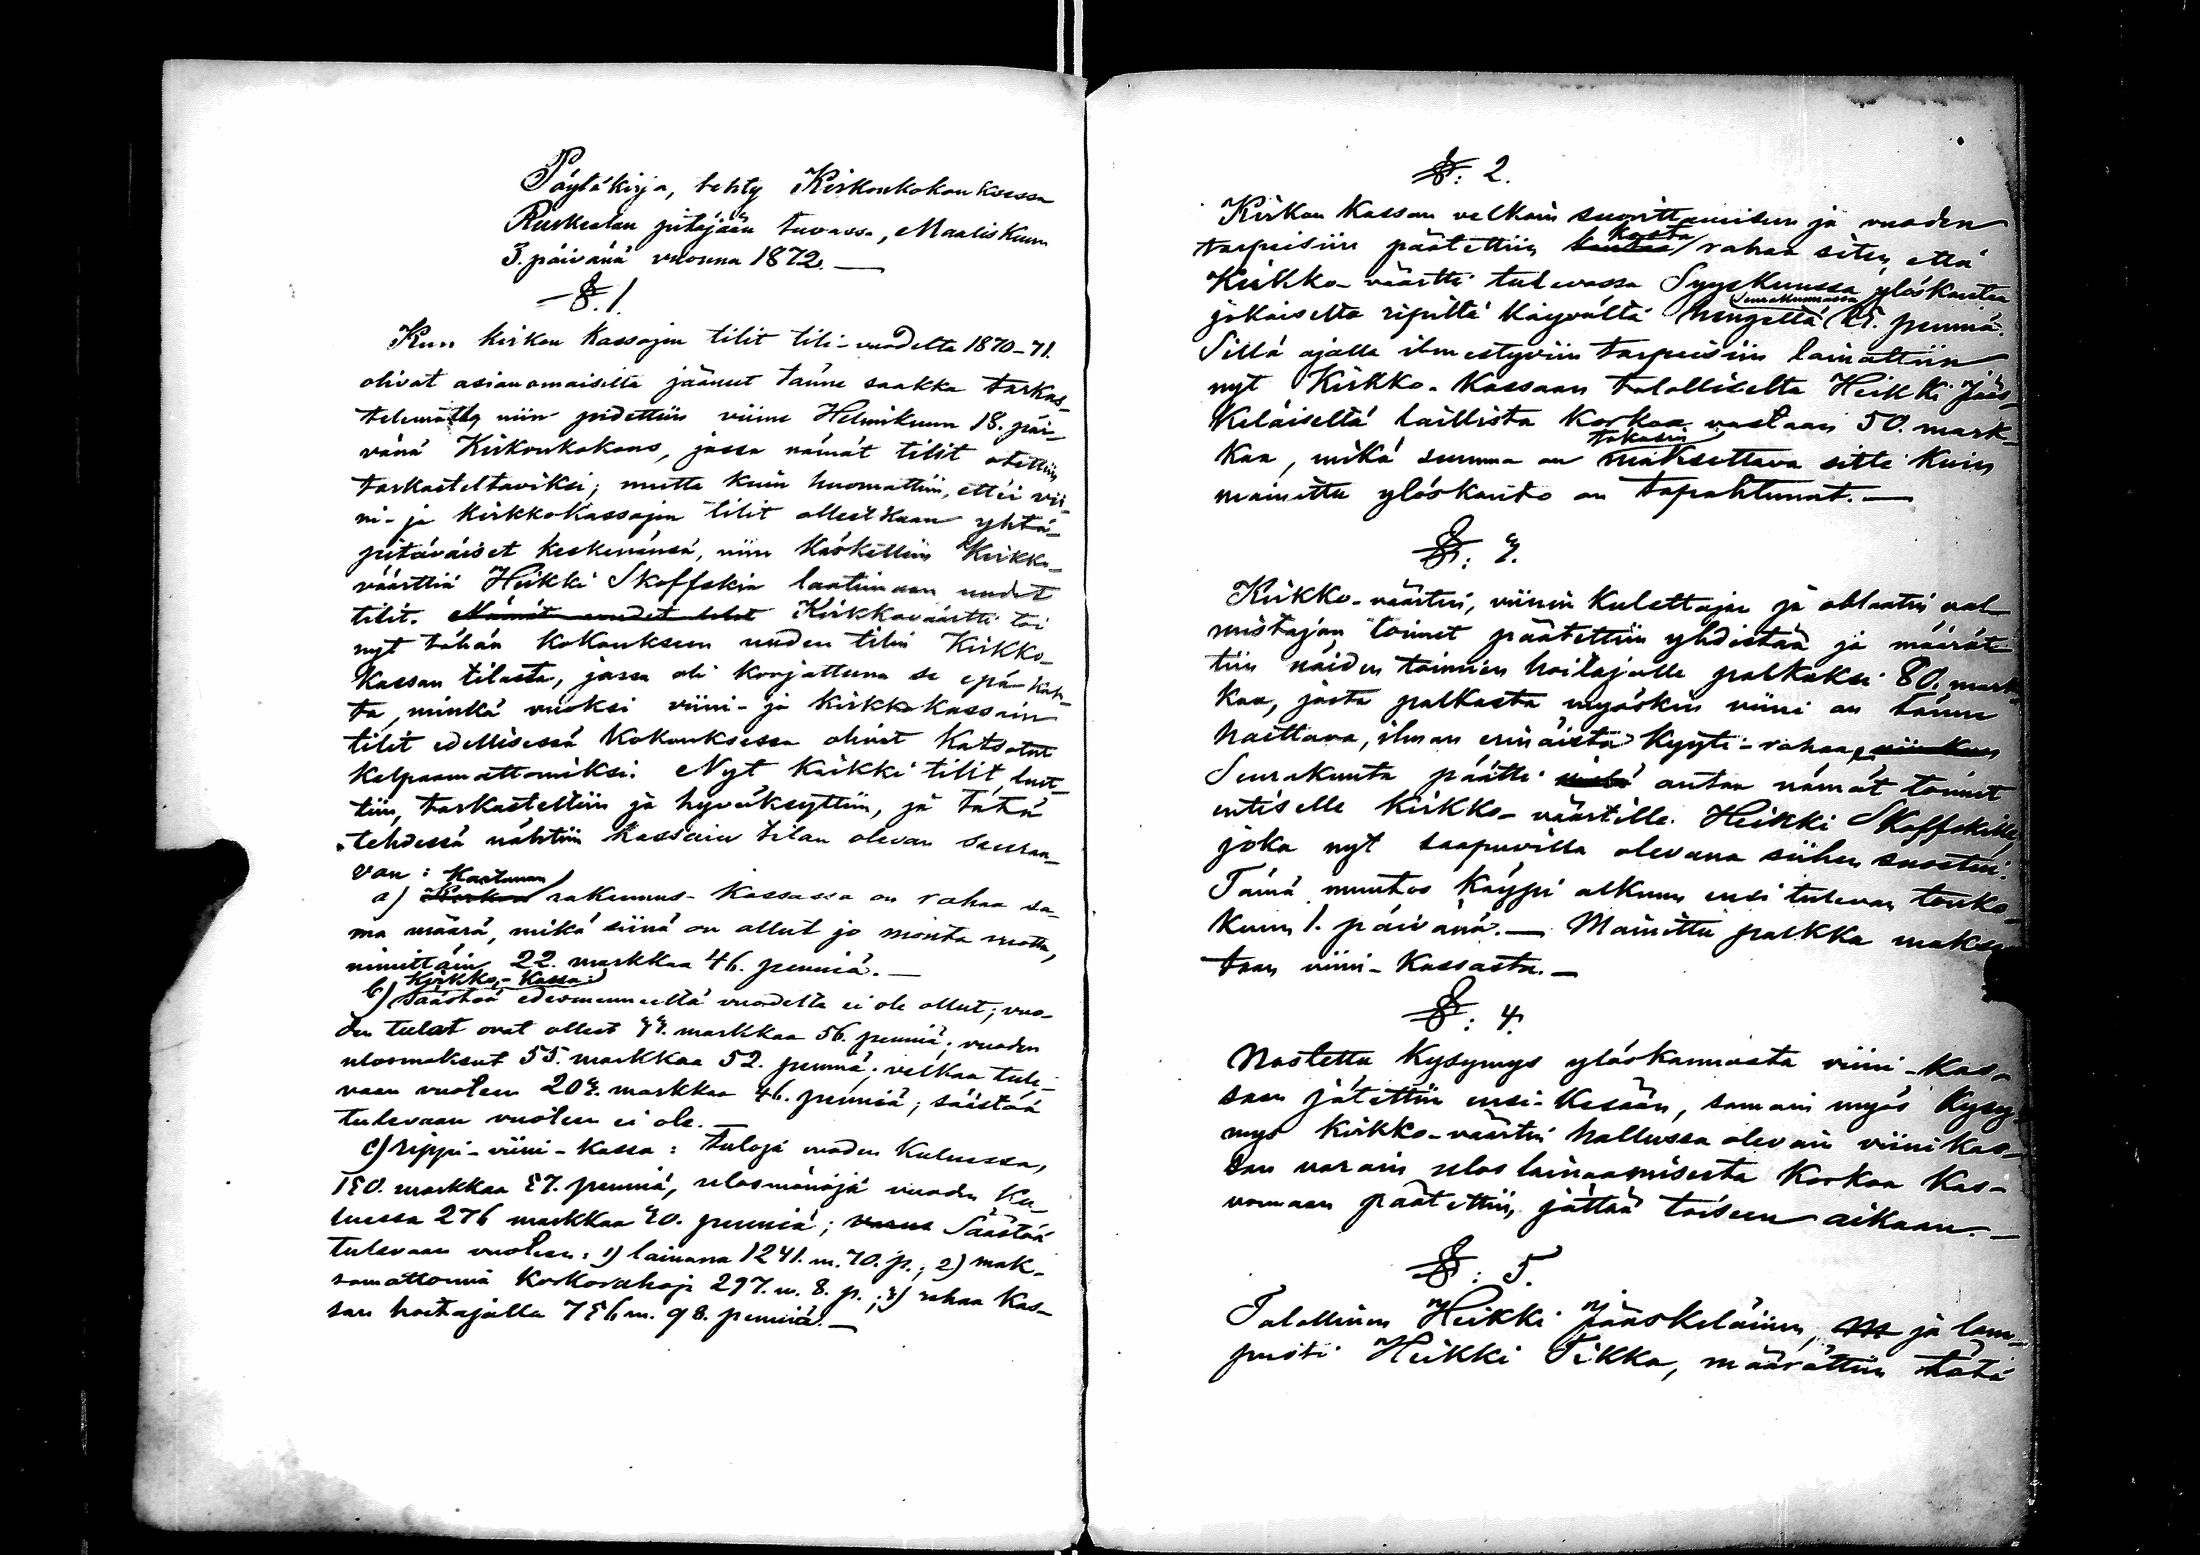 Pöytäkirja, tehty Kirkonkokouksessa
Ruskealan pitäjään tuvassa, Maaliskuun
3. päivänä vuonna 1872. —
§. 1.
Kun kirkon kassojen tilit tili-vuodelta 1870-71.
olivat asianomaisilta jääneet tänne saakka tarkas-
telematta, niin pidettiin viime Helmikuun 18. päi-
vänä Kirkonkokous, jossa nämät tilit otettiin
tarkasteltaviksi; mutta kuin huomattiin, ettei vii-
ni- ja kirkkokassojen tilit olleetkaan yhtä-
pitäväiset keskenänsä, niin käskettiin Kirkko-
väärttiä Heikki Skoffskia laatimaan uudet
tilit. Nämät uudet tilit Kirkkoväärtti toi
nyt tähän kokoukseen uuden tilin Kirkko-
kassan tilasta, jossa oli korjattuna se epä-koh-
ta, minkä vuoksi viini- ja kirkkokassain
tilit edellisessä kokouksessa olivat katsotut
kelpaamattomiksi. Nyt kaikki tilit luet-
tiin, tarkasteltiin ja hyväksyttiin, ja tätä
tehdessä nähtiin kassain tilan olevan seuraa-
van:
Kartanon
a) Kirkon rakennus-kassassa on rahaa sa-
ma määrä, mikä siinä on ollut jo monta vuotta,
nimittäin 22. markkaa 46. penniä. —
Kirkko-Kassa:
b) Säästöä edesmenneeltä vuodelta ei ole ollut; vuo-
den tulot ovat olleet 33. markkaa 56. penniä; vuoden
ulosmaksut 55. markkaa 52. penniä; velkaa tule-
vaan vuoteen 203. markkaa 46. penniä; säästöä
tulevaan vuoteen ei ole. —
c) rippi-viini-kassa: tuloja vuoden kuluessa,
180. markkaa 87. penniä, ulosmenoja vuoden ku-
luessa 276 markkaa 30. penniä; Säästöä
tulevaan vuoteen: 1) lainana 1241. m. 70. p.; 2) mak-
samattomia korkorahoja 297. m. 8. p.; 3) rahaa kas-
san hoitajalla 786 m. 98. penniä. —
§: 2.
Kirkon kassan velkain suorittamiseen ja vuoden
kosta
tarpeisiin päätettiin kantaa rahaa siten, että
Kirkko-väärtti tulevassa Syyskuussa ylöskantaa
Seurakunnassa
jokaiselta ripillä käyvältä hengeltä 25. penniä.
Sillä ajalla ilmestyviin tarpeisiin lainattiin
nyt Kirkko-Kassaan talolliselta Heikki Jääs-
keläiseltä laillista korkoa vastaan 50. mark-
takasin
kaa, mikä summa on maksettava sitte kuin
mainittu ylöskanto on tapahtunut. —
§: 3.
Kirkko-väärtin, viinin kulettajan ja oblaatin val-
mistajan toimet päätettiin yhdistää ja määrät-
tiin näiden toimien hoitajalle palkaksi 80. mark-
kaa, josta palkasta myöskin viini on tänne
haettava, ilman erinäistä kyyti-rahaa, niinkuin
Seurakunta päätti antaa nämät toimet
entiselle kirkko-väärtille Heikki Skoffskille,
joka nyt saapuvilla olevana siihen suostui.
Tämä muutos käypi alkuun ensi tulevan touko-
kuun 1. päivänä. — Mainittu palkka makse-
taan viini-Kassasta. —
§: 4.
Nostettu kysymys ylöskannosta viini-kas-
saan jätettiin ensi-kesään, samoin myös kysy-
mys kirkko-väärtin hallussa olevain viinikas-
san varain uloslainaamisesta korkoa kas-
vamaan päätettiin jättää toiseen aikaan. —
§: 5.
Talollinen Heikki Jääskeläinen, ja lam-
puoti Heikki Tikka, määrättiin tätä